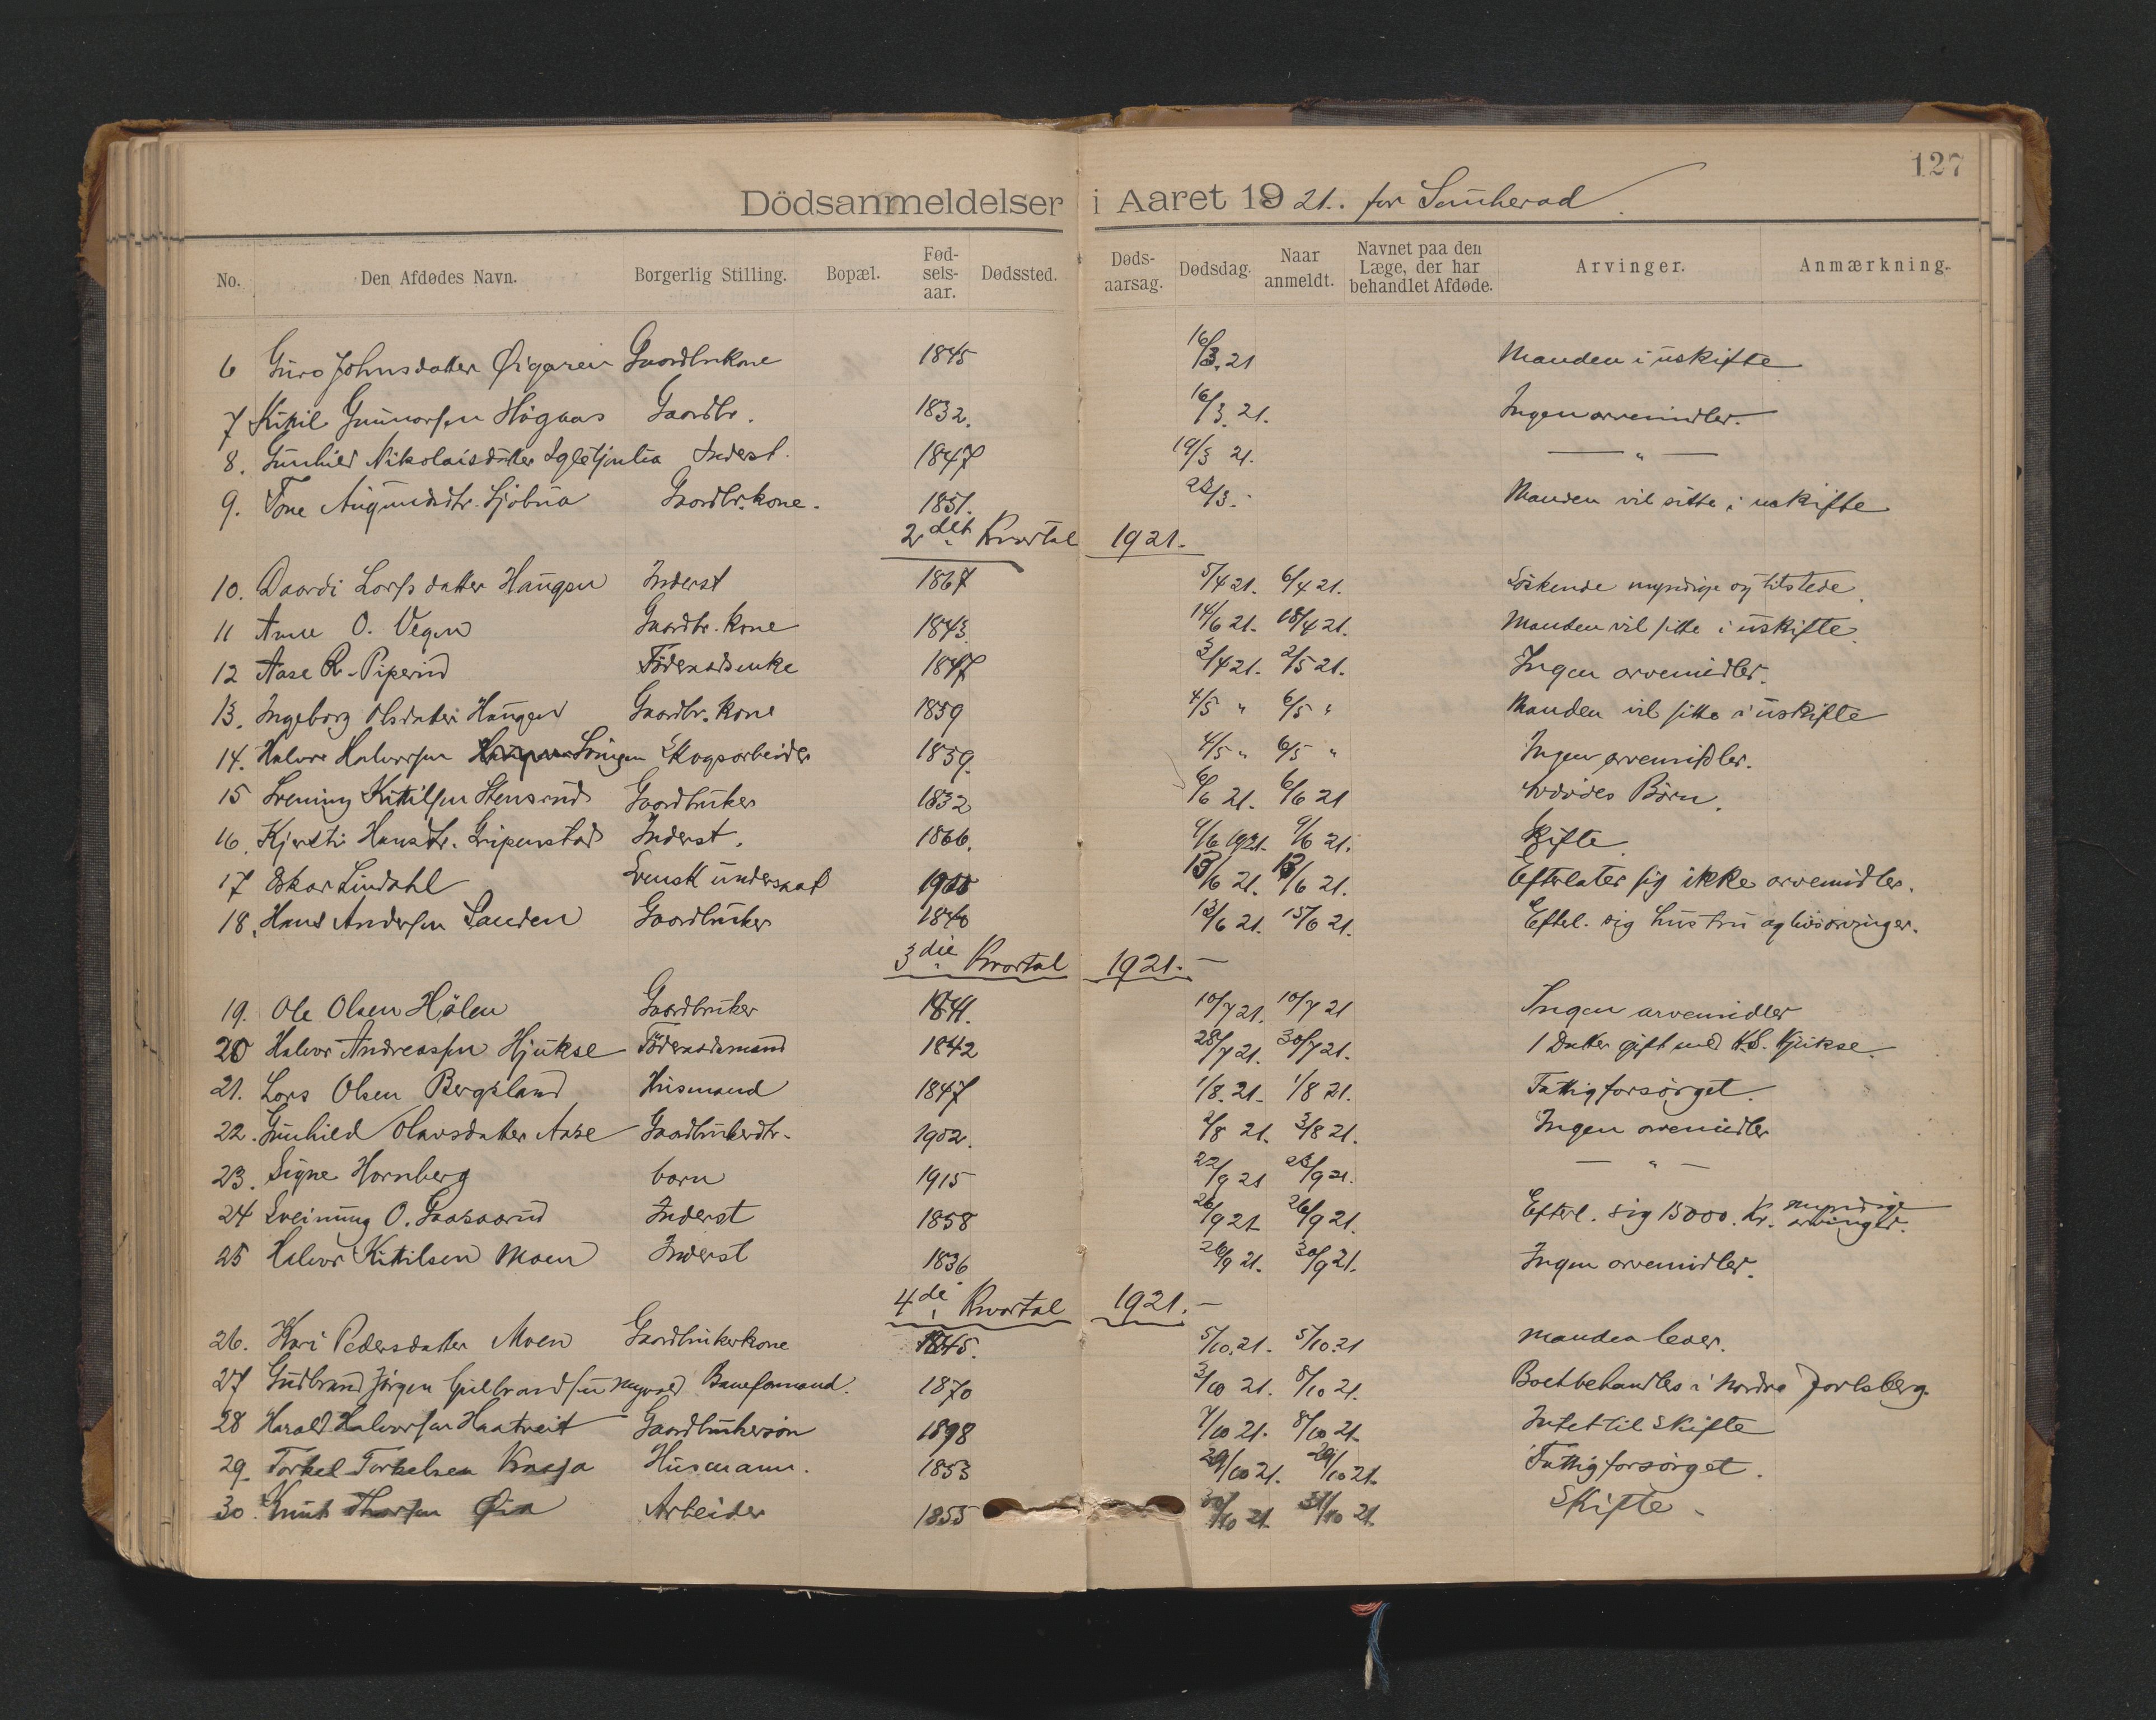 127
Dödsanmeldelser i Aaret 1921. for Sauherad
No. Den Afdødes Navn. Borgerlig Stilling. Bopæl. Fød-sels-aar. Dødssted. Døds-aarsag. Dødsdag. Naar anmeldt. Navnet paa den Læge, der har behandlet Afdøde. Arvinger. Anmærkning.
6 Guro Johnsdatter Øigaren Gaardbrkone 1845 16/3. 21 Manden i uskifte
7 Kittil Gunnarsen Høgaas Gaardbr. 1832. 16/3. 21. Ingen arvemidler.
8. Gunhild Nikolaisdatter Inderst. 1847 19/3 21. — " —
9. Tone Aagmundsdtr. Sjöbua Gaardbr.kone. 1851. 23/3. Manden vil sitte i uskifte
2det Kvartal 1921.
10. Daardi Larsdatter Haugen Inderst 1867 5/4 21. 6/4 21. Söskende myndige og tilstede.
11 Anne O. Vegen Gaardbr. kone 1843. 14/6 21. 18/4 21. Manden vil sitte i uskifte.
12 Aase R. Piperud Föderaadsenke 1847 3/4 21. 2/5 21. Ingen arvemidler.
13. Ingeborg Olsdatter Haugen Gaardbr. kone 1859 4/5 " 6/5 " Manden vil sitte i uskifte
14. Halvor Halvorsen Skogsarbeider 1859. 4/5 " 6/5 " Ingen arvemidler.
15 Sveinung Kittilsen Stensrud Gaardbruker 1832 6/6 21. 6/6 21 Börn.
16. Kjersti Hansdtr. Gripenstad Inderst. 1866. 9/6 1921. 9/6 21. Skifte
17 Oskar Lindahl Svensk undersaat 1900 13/6 21. 13/6 21. Efterlater sig ikke arvemidler.
18. Hans Andersen Sanden Gaardbruker 1840 13/6 21. 15/6 21. Efterl. sig hustru og livsarvinger.
3die Kvartal 1921.—
19. Ole Olsen Hölen Gaardbruker 1841. 10/7 21. 10/7 21 Ingen arvemidler
20 Halvor Andreassen Hjukse Föderaadsmand 1842 28/7 21. 30/7 21. 1 Datter gift med H.S. Hjukse.
21. Lars Olsen Bergsland Husmand 1847 1/8. 21. 1/8 21. Fattigforsörget.
22. Gunhild Olavsdatter Aase Gaardbrukerdtr. 1902. 2/8 21. 3/8 21. Ingen arvemidler
23. Signe Hornberg barn 1915 22/9 21 23/9 21. — " —
24 Sveinung O. Gaasarud Inderst 1858 26/9 21 26/9 21. Efterl. sig 15000. Kr. myndige arvinger.
25 Halvor Kittilsen Moen Inderst 1836 26/9 21. 30/9 21. Ingen arvemidler.
4de Kvartal 1921.—
26. Kari Pedersdatter Moen Gaardbrukerkone 1845. 5/10. 21. 5/10. 21 Manden lever.
27 Gudbrand Jörgen Gulbrandsen Myvold Baneformand. 1870 3/10 21. 8/10 21. Boet behandles i Nordre Jarlsberg.
28 Harald Halvorsen Haatveit Gaardbrukersön 1898 7/10 21. 8/10 21. Intet til skifte
29. Torkel Torkelsen Kaasa Husmann. 1853 29/10 21. 29/10 21. Fattigforsörget.
30. Knut Thorsen Øia Arbeider 1855 30/10 21. 31/10 21. Skifte.